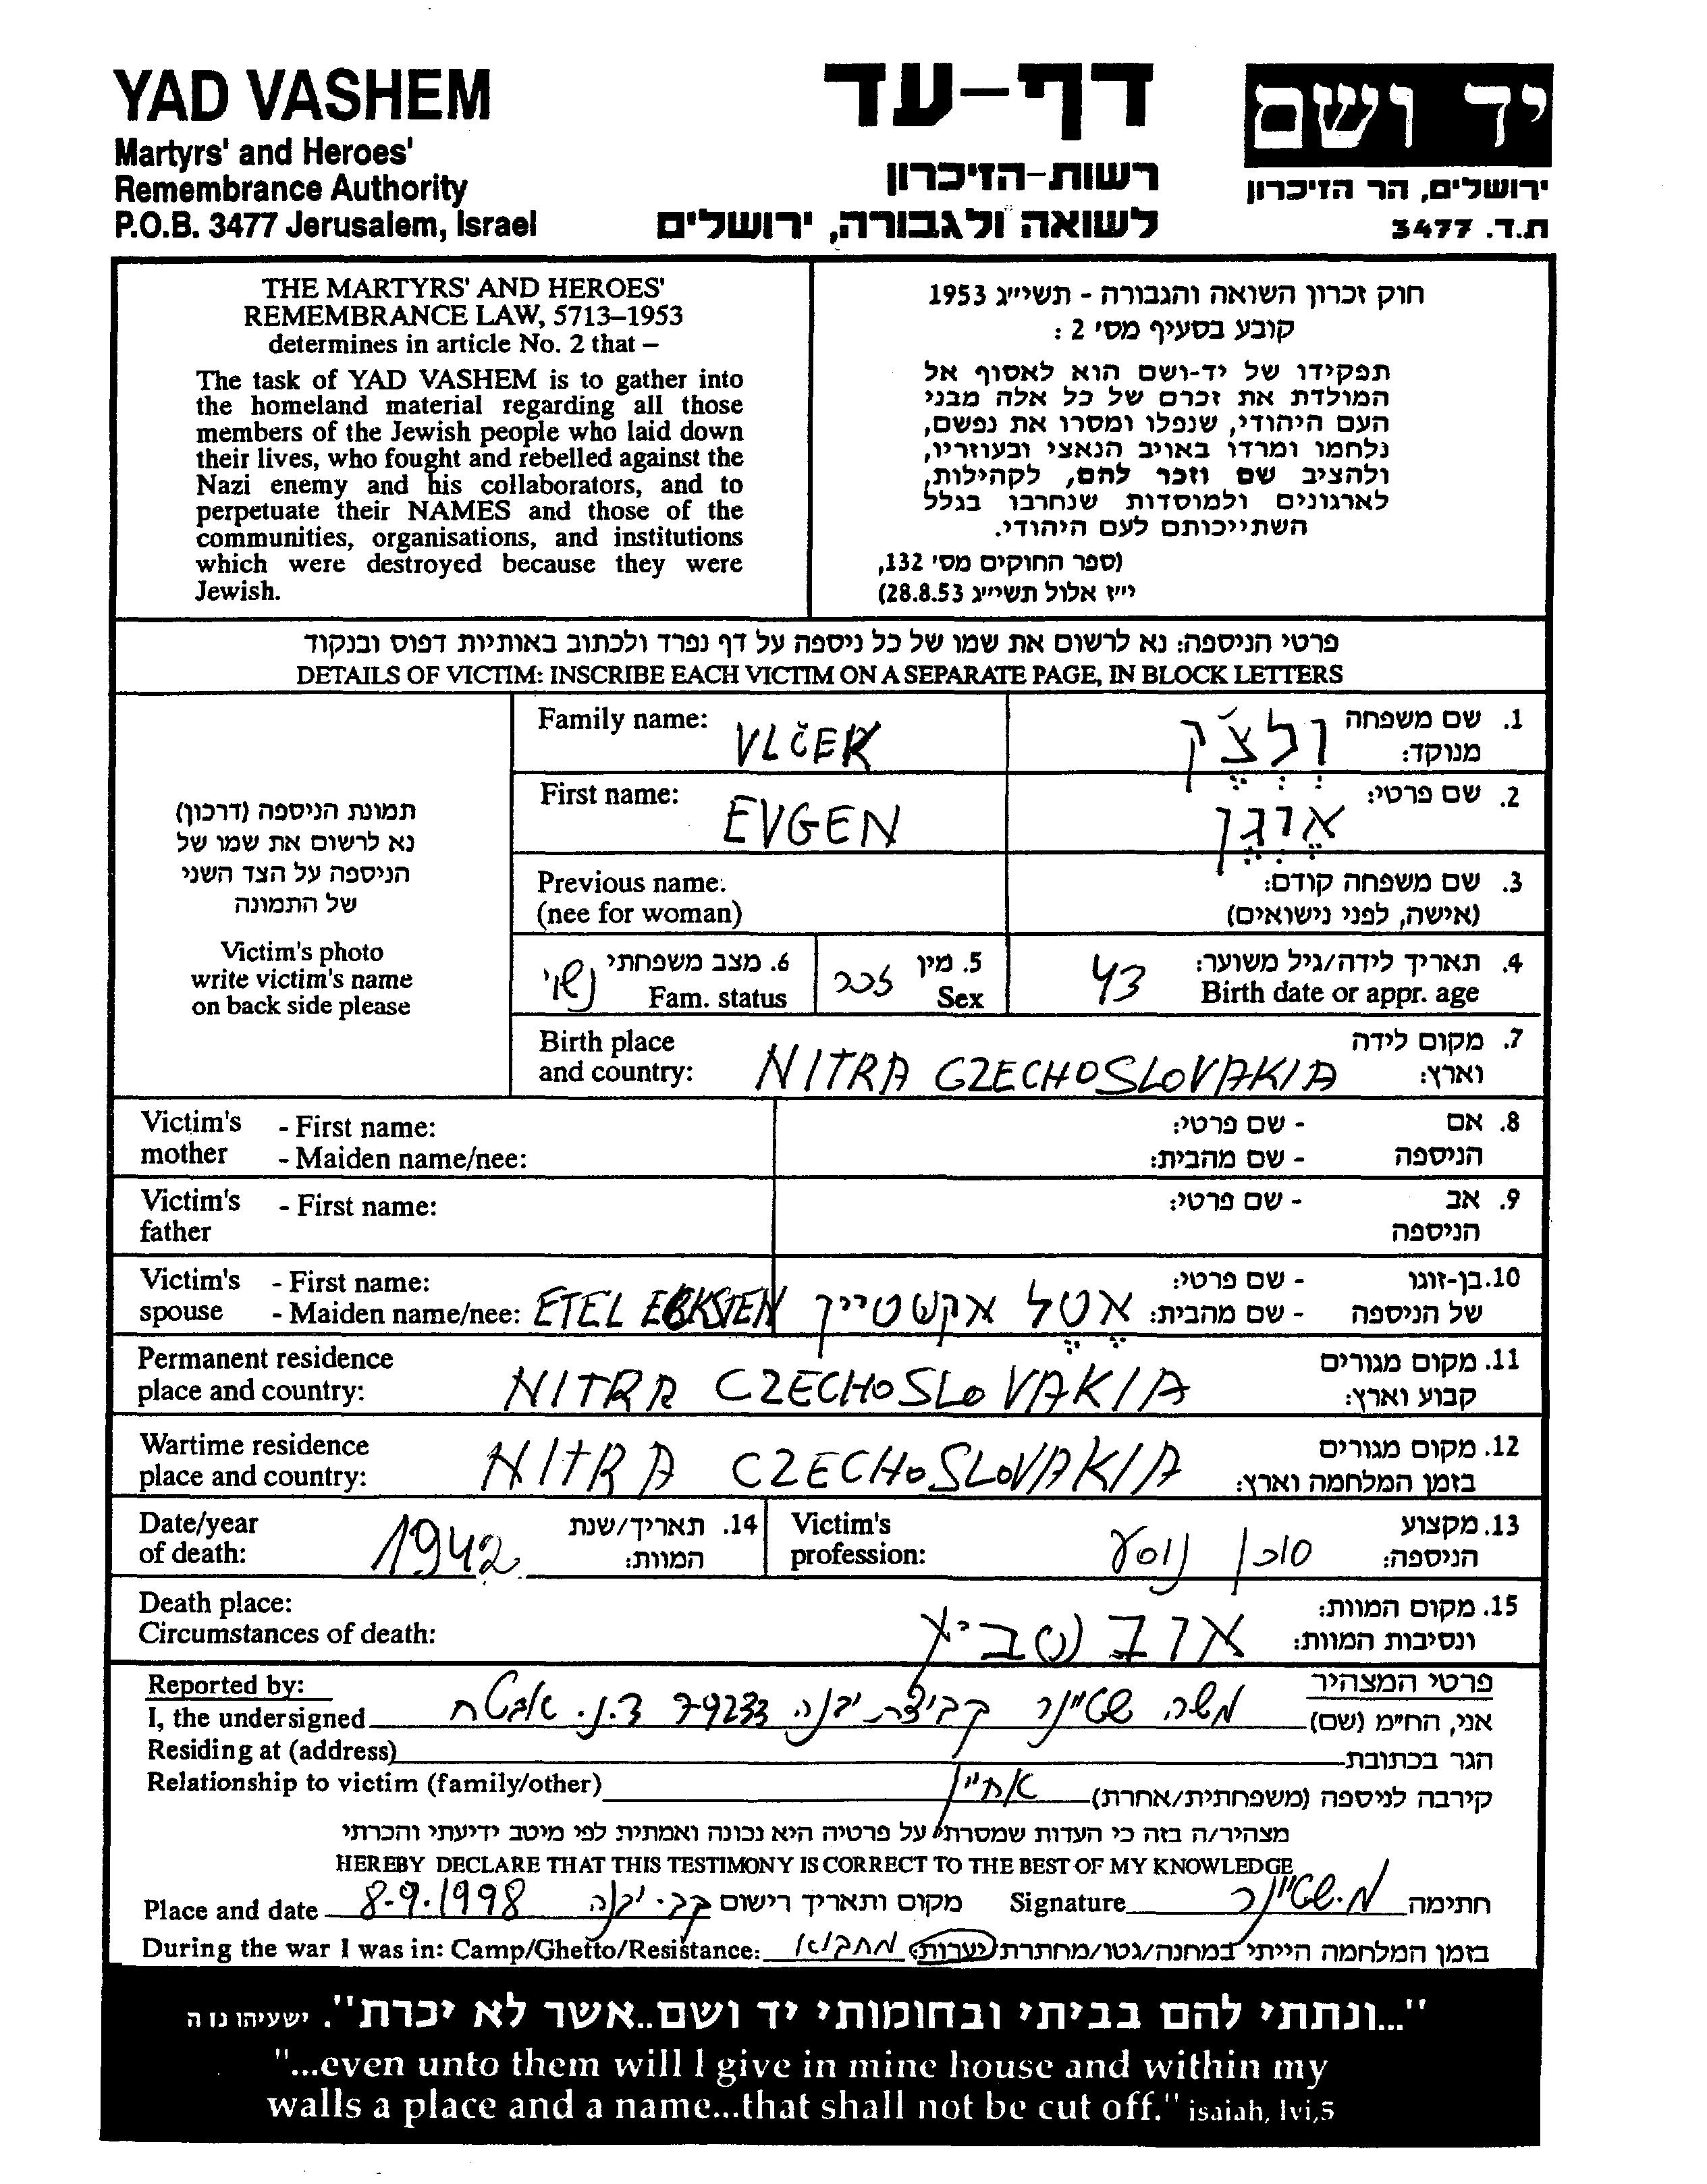 YAD VASHEM
Martyrs' and Heroes'
Remembrance Authority
P.O.B. 3477 Jerusalem, Israel
דף-עד
רשות-הזיכרון
לשואה ולגבורה, ירושלים
יד ושם
ירושלים, הר הזיכרון
ת.ד. 3477
THE MARTYRS' AND HEROES'
REMEMBRANCE LAW, 5713–1953
determines in article No. 2 that –
The task of YAD VASHEM is to gather into
the homeland material regarding all those
members of the Jewish people who laid down
their lives, who fought and rebelled against the
Nazi enemy and his collaborators, and to
perpetuate their NAMES and those of the
communities, organisations, and institutions
which were destroyed because they were
Jewish.
חוק זכרון השואה והגבורה - תשי״ג 1953
קובע בסעיף מס׳ 2 :
תפקידו של יד-ושם הוא לאסוף אל
המולדת את זכרם של כל אלה מבני
העם היהודי, שנפלו ומסרו את נפשם,
נלחמו ומרדו באויב הנאצי ובעוזריו,
ולהציב שם וזכר להם, לקהילות,
לארגונים ולמוסדות שנחרבו בגלל
השתייכותם לעם היהודי.
(ספר החוקים מס׳ 132,
י״ז אלול תשי״ג 28.8.53)
פרטי הניספה: נא לרשום את שמו של כל ניספה על דף נפרד ולכתוב באותיות דפוס ובנקוד
DETAILS OF VICTIM: INSCRIBE EACH VICTIM ON A SEPARATE PAGE, IN BLOCK LETTERS
תמונת הניספה (דרכון)
נא לרשום את שמו של
הניספה על הצד השני
של התמונה
Victim's photo
write victim's name
on back side please
Family name: VLČEK
1. שם משפחה
מנוקד: וִלְצֶ'ק
First name: EVGEN
2. שם פרטי: אֶוְגֶן
Previous name:
(nee for woman)
3. שם משפחה קודם:
(אישה, לפני נישואים)
6. מצב משפחתי נשוי
Fam. status
5. מין זכר
Sex
4. תאריך לידה/גיל משוער: 43
Birth date or appr. age
Birth place
and country: NITRA CZECHOSLOVAKIA
7. מקום לידה
וארץ:
Victim's - First name:
mother - Maiden name/nee:
8. אם - שם פרטי:
הניספה - שם מהבית:
Victim's - First name:
father
9. אב - שם פרטי:
הניספה
Victim's - First name:
spouse - Maiden name/nee: ETEL EKSTEN
10. בן-זוגו - שם פרטי:
של הניספה - שם מהבית: אֶטֶל אקשטיין
Permanent residence
place and country: NITRA CZECHOSLOVAKIA
11. מקום מגורים
קבוע וארץ:
Wartime residence
place and country: NITRA CZECHOSLOVAKIA
12. מקום מגורים
בזמן המלחמה וארץ:
Date/year
of death: 1942
14. תאריך/שנת
המוות:
Victim's
profession:
13. מקצוע
הניספה: סוכן נוסע
Death place:
Circumstances of death:
15. מקום המוות:
ונסיבות המוות: אושביץ
Reported by:
I, the undersigned
פרטי המצהיר
אני, הח״מ (שם) משה שטיינר קביצת יבנה 79233 ד.נ. אבטח
Residing at (address)
הגר בכתובת
Relationship to victim (family/other)
קירבה לניספה (משפחתית/אחרת) אחיין
מצהיר/ה בזה כי העדות שמסרתי על פרטיה היא נכונה ואמתית לפי מיטב ידיעתי והכרתי
HEREBY DECLARE THAT THIS TESTIMONY IS CORRECT TO THE BEST OF MY KNOWLEDGE
Place and date 8-9-1998 מקום ותאריך רישום קב. יבנה
Signature חתימה מ. שטיינר
During the war I was in: Camp/Ghetto/Resistance:
בזמן המלחמה הייתי במחנה/גטו/מחתרת/יערות: מחבוא
"...ונתתי להם בביתי ובחומותי יד ושם..אשר לא יכרת". ישעיהו נו ה
"...even unto them will I give in mine house and within my
walls a place and a name...that shall not be cut off." isaiah, lvi,5